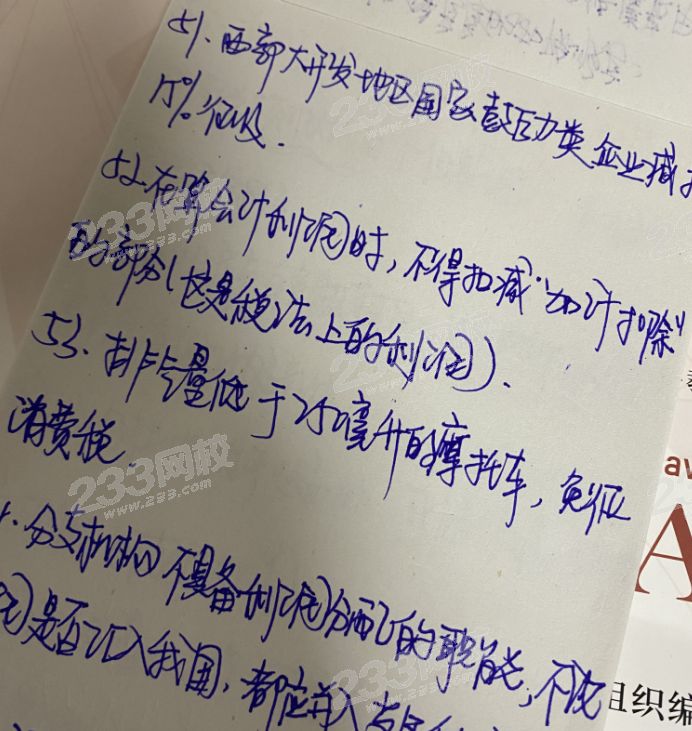 51. 西部大开发地区国家鼓励类企业减按
15%征收.
52. 在算会计利润时, 不得扣减"加计扣除"
的部分(这是税法上的利润).
53. 排气量低于250毫升的摩托车, 免征
消费税.
分支机构不具备利润分配的职能, 不论
润是否汇入我国, 都应并入
组织编
233网校
www.233.com